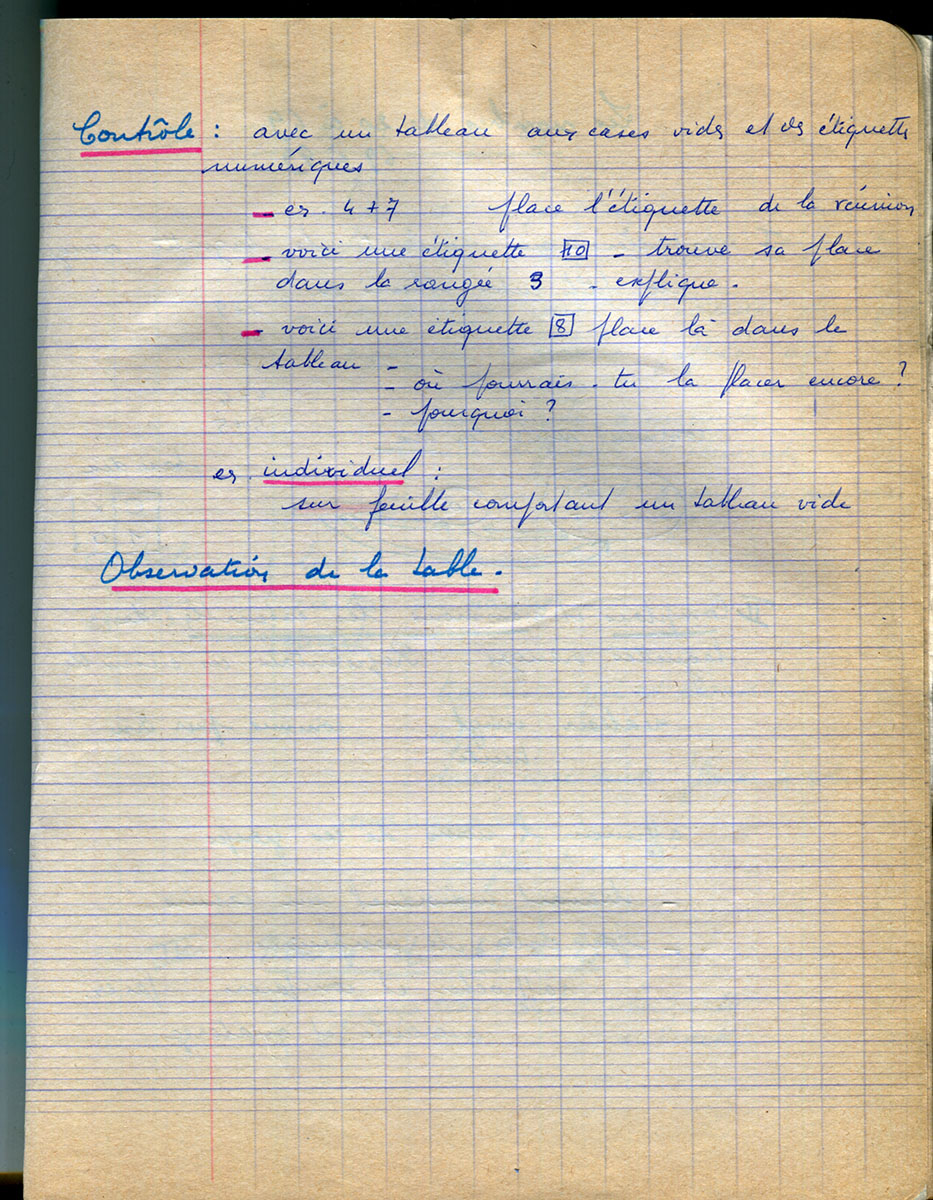 Contrôle : avec un tableau aux cases vides et des étiquettes
numériques
- ex. 4 + 7 place l'étiquette de la réunion
- voici une étiquette 10 - trouve sa place
dans la rangée 3 - explique.
- voici une étiquette 8 place là dans le
tableau
- où pourrais-tu la placer encore ?
- pourquoi ?
ex. individuel :
sur feuille comportant un tableau vide
Observation de la table.